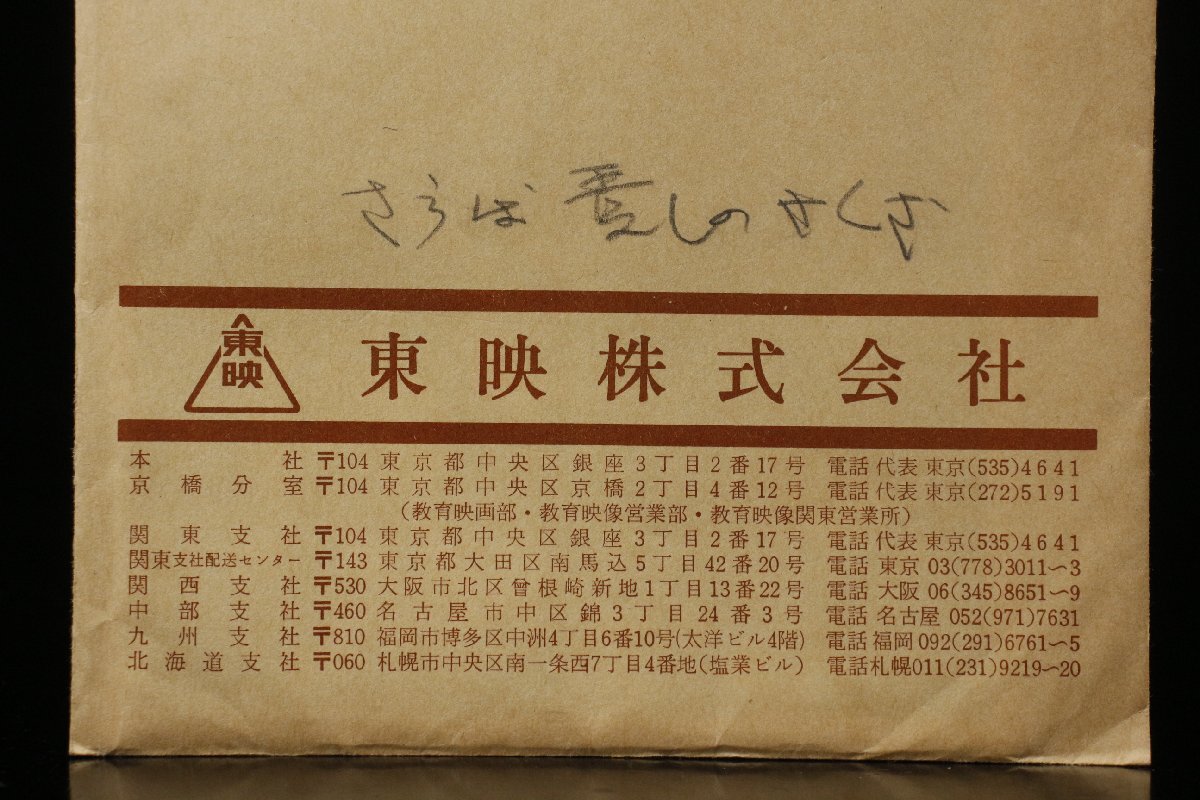 さらば愛しのやくざ
東映
東映株式会社
本社 〒104 東京都中央区銀座3丁目2番17号 電話 代表 東京(535)4641
京橋分室 〒104 東京都中央区京橋2丁目4番12号 電話 代表 東京(272)5191
(教育映画部・教育映像営業部・教育映像関東営業所)
関東支社 〒104 東京都中央区銀座3丁目2番17号 電話 代表 東京(535)4641
関東支社配送センター 〒143 東京都大田区南馬込5丁目42番20号 電話 東京 03(778)3011〜3
関西支社 〒530 大阪市北区曾根崎新地1丁目13番22号 電話 大阪 06(345)8651〜9
中部支社 〒460 名古屋市中区錦3丁目24番3号 電話 名古屋 052(971)7631
九州支社 〒810 福岡市博多区中洲4丁目6番10号(太洋ビル4階) 電話 福岡 092(291)6761〜5
北海道支社 〒060 札幌市中央区南一条西7丁目4番地(塩業ビル) 電話 札幌 011(231)9219〜20